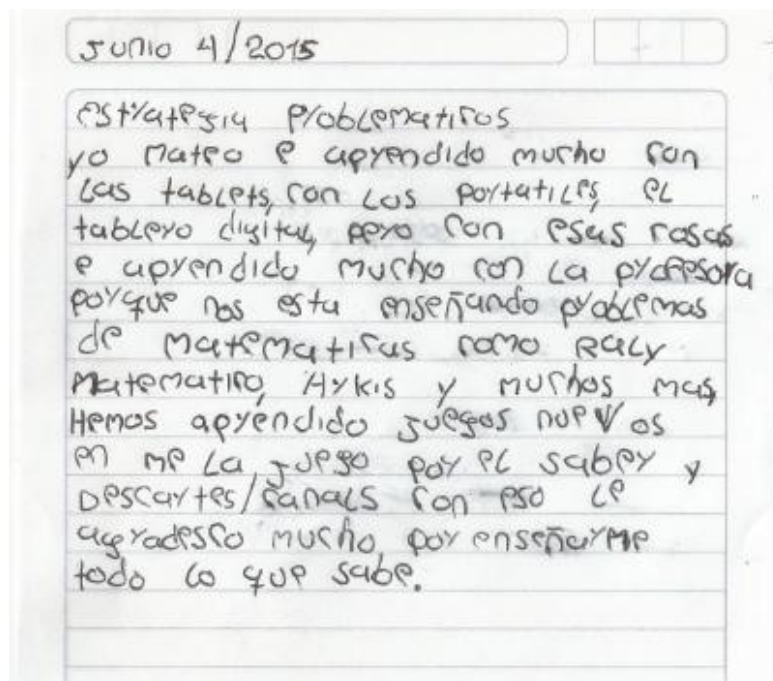 Junio 4/2015
estrategia problematicos
yo mateo e aprendido mucho con
las tablets, con los portatiles, el
tablero digital, pero con esas cosas
e aprendido mucho con la profesora
porque nos esta enseñando problemas
de matematicas como Raly
matematico, Hykis y muchos mas,
Hemos aprendido juegos nuevos
en me la juego por el saber y
Descartes/canals con eso le
agradesco mucho, por enseñarme
todo lo que sabe.